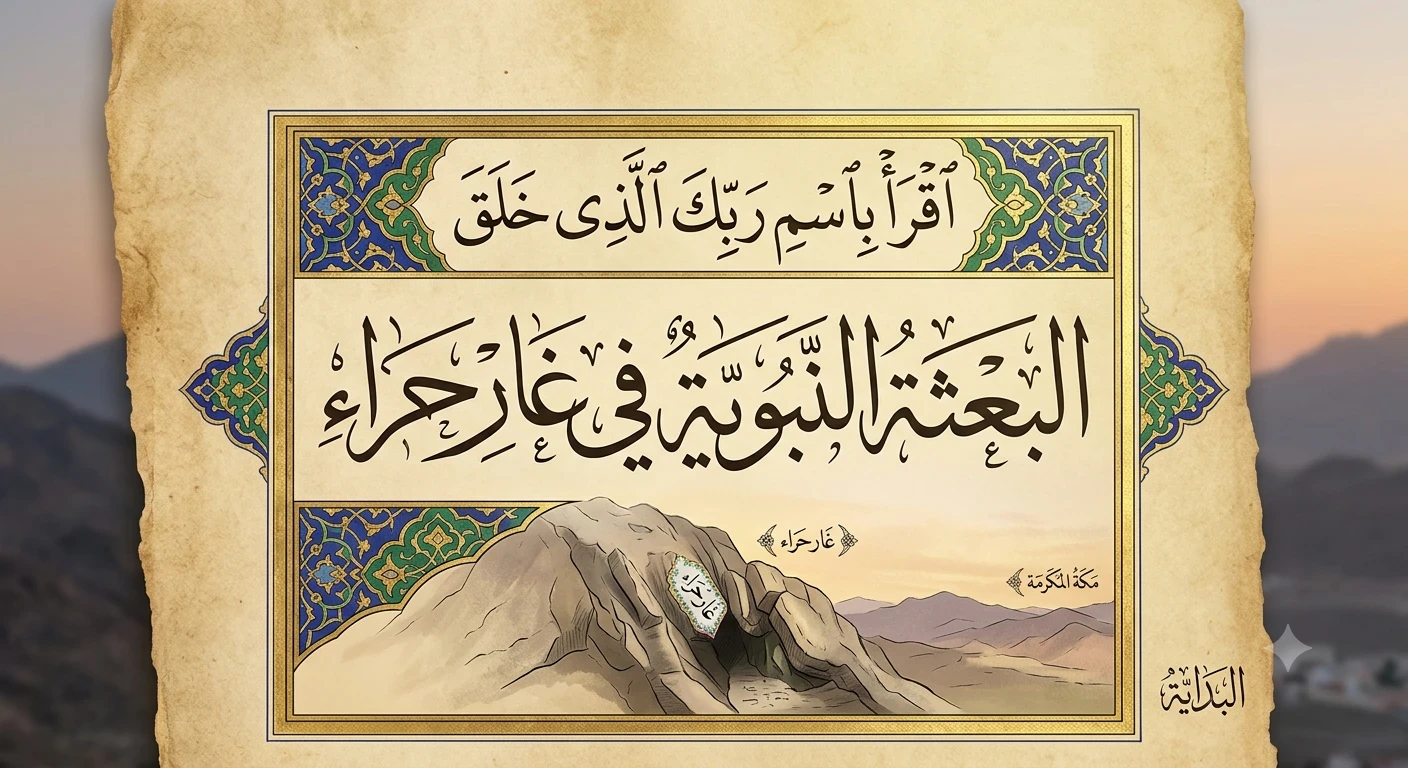 ٱقْرَأْ بِٱسْمِ رَبِّكَ ٱلَّذِى خَلَقَ
البَعْثَةُ النَّبُوَيَّةٌ في غَارِ حَرَاءِ
غَار حَرَاء
مَكَةُ المُكَرمَة
غَار حَرَاء
البَدَايَّةُ